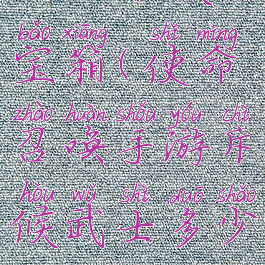 bǎo xiāng shǐ mìng
宝箱(使命
zhào huàn shǒu yóu chì
召唤手游斥
hòu wǔ shì duō shǎo
候武士多少